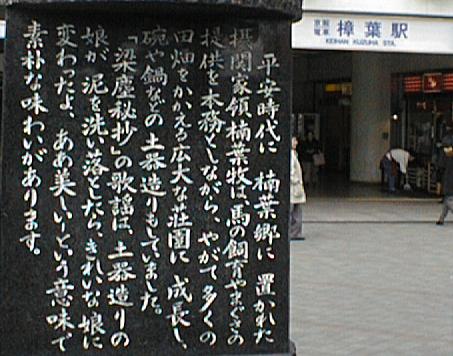 平安時代に 楠葉郷に 置かれた
摂関家領楠葉牧は馬の飼育やまぐさの
提供を本務としながら、やがて多くの
田畑をかかえる広大な荘園に 成長し、
碗や鍋などの 土器造りもしていました。
「梁塵秘抄」の歌謡は、土器造りの
娘が 泥を洗い落としたら、きれいな娘に
変わったよ、ああ美しい！という意味で
素朴な味わいがあります。
京阪電車 樟葉駅
KEIHAN KUZUHA STA.